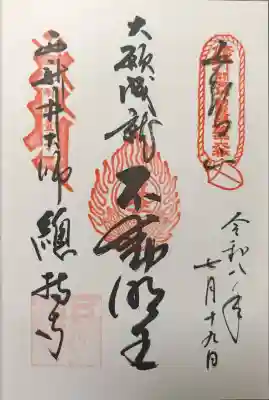 五智山
令和八年
七月十九日
大願成就 不動明王
西新井大師 總持寺